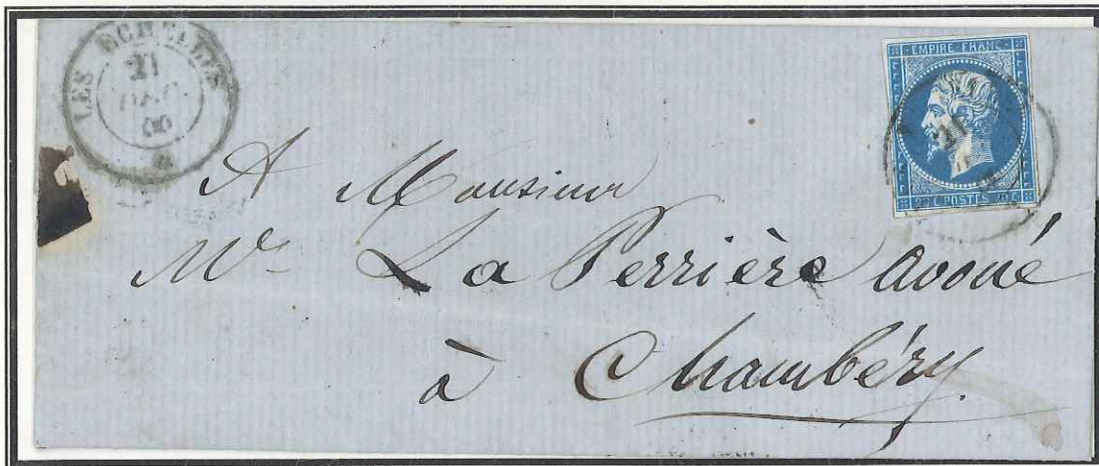 LES ECHELLES
21
60
EMPIRE FRANC.
20 C POSTES 20 C
A Monsieur
Me La Perrière avoué
à Chambéry